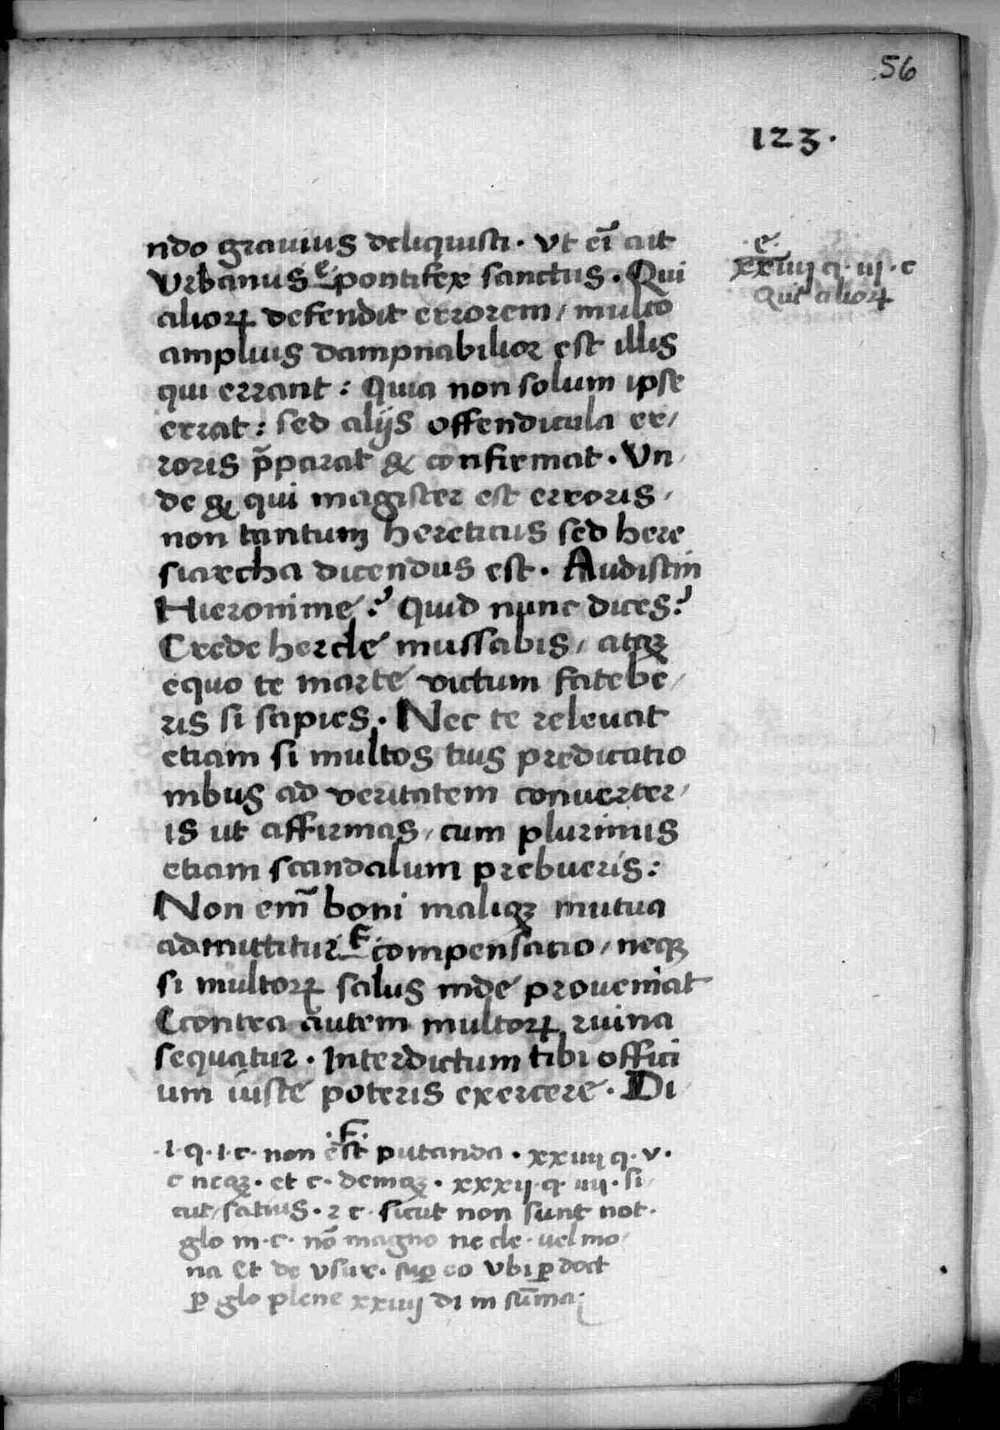 56
123.
ndo grauius deliquisti. Vt eī ait
Vrbanus e pontifex sanctus. Qui
alioꝝ defendit errorem / multo
amplius dampnabilior est illis
qui errant : Quia non solum ipse
errat : sed alijs offendicula er/
roris p̄parat & confirmat. Vn/
de & qui magister est erroris /
non tantum hereticus sed here
siarcha dicendus est. Audistin
Hieronime? Quid nunc dices?
Crede hercle mussabis / atqꝫ
equo te marte victum fatebe/
ris si sapies. Nec te releuat
etiam si multos tuis predicatio
nibus ad veritatem conuerter/
is ut affirmas / cum plurimis
etiam scandalum prebueris :
Non em̄ boni maliqꝫ mutua
admittitur F compensatio / neqꝫ
si multoꝝ salus inde proueniat
Econtra autem multoꝝ ruina
sequatur. Interdictum tibi offici
um iuste poteris exercere. Di
.e.
xxiiij q. iij. c
Qui alioꝝ
.F.
.I. q. I. c. non est putanda. xxiiij q. v.
c neqꝫ. et c. deniqꝫ. xxxij. q. iiij. si/
cut satius. 2 c. sicut non sunt not.
glo in. c. nō magno ne cle. uel mo/
na Et de vsur. suꝑ eo vbi ꝑ doct
ꝑ glo plene xxiiij di in sūma.